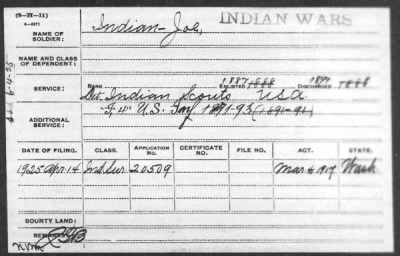 (N-IX-II)
Indian-Joe,
INDIAN WARS
NAME OF
SOLDIER:
NAME AND CLASS
OF DEPENDENT:
RANK
1887 1888
ENLISTED
DISCHARGED
SERVICE:
Indian Scouts U.S.A.
ADDITIONAL
SERVICE:
U.S. Inf 1891-93 (1891-91)
DATE OF FILING.
CLASS.
APPLICATION
NO.
CERTIFICATE
NO.
FILE NO.
ACT.
STATE.
1925 Apr 14
Ind. Sur.
20509
Mar 4 1917
Wash
BOUNTY LAND:
REMARKS: